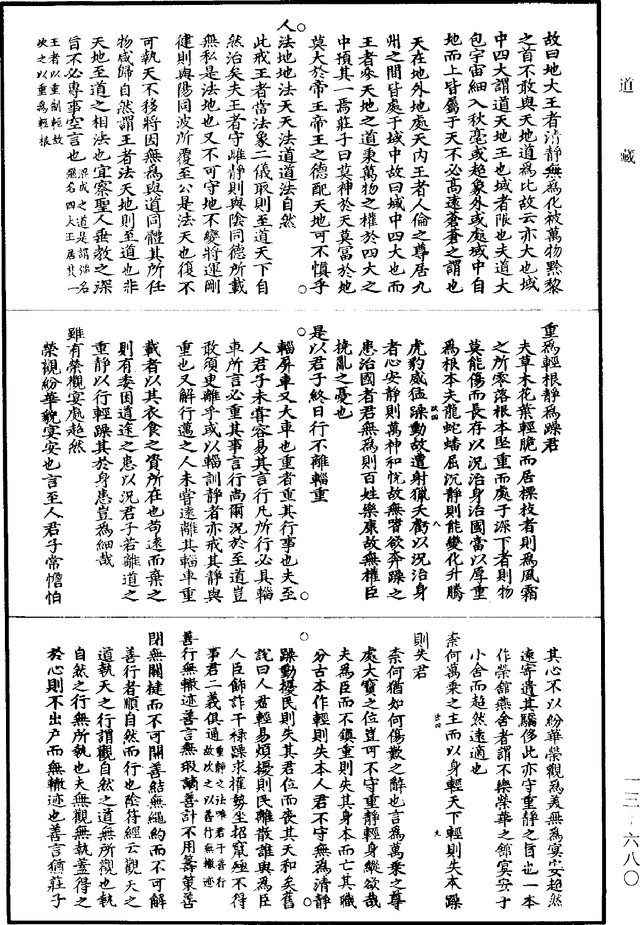 道藏
故曰地大王者清靜無為化被萬物黔黎
之首不敢與天地道為比故云亦大也域
中四大謂道天地王也域者限也夫道大
包宇宙細入秋毫或超象外或處域中自
地而上皆屬于天不必高遠蒼蒼之謂也
天在地外地處天內王者人倫之尊居九
州之間皆處于域中故曰域中四大也而
王者參天地之道秉萬物之權於四大之
中預其一焉莊子曰莫神於天莫富於地
莫大於帝王帝王之德配天地可不慎乎
人法地地法天天法道道法自然
此戒王者當法象二儀取則至道天下自
然治矣夫王者守雌靜則與陰同德所載
無私是法地也又不可守地不變將運剛
健則與陽同波所覆至公是法天也復不
可執天不移將因無為與道同體其所任
物咸歸自然謂王者法天地則至道也非
天地至道之相法也宜察聖人垂教之深
旨不必專事空言也混成之道是謂強名強名四大王居其一
王者以重制輕故次之以重為輕根
重為輕根靜為躁君
夫草木花葉輕脆而居標枝者則為風霜
之所零落根本堅重而處于深下者則物
莫能傷而長存以況治身治國當以厚重
為根本夫龍蛇蟠屈沉靜則能變化升騰
虎豹威猛躁動故遭射獵夭虧以況治身
者心安靜則萬神和悅故無嗜欲奔躁之
患治國者君無為則百姓樂康故無權臣
撓亂之憂也
是以君子終日行不離輜重
輜屏車又大車也重者重其行事也夫至
人君子未嘗容易其言行凡所行必具輜
車所言必重其事言行尚爾況於至道豈
敢須臾離乎或以輜訓靜者亦戒其靜與
重也又解行邁之人未嘗遠離其輜車重
載者以其衣食之資所在也苟遠而棄之
則有委困道途之患以況君子若離道之
重靜以行輕躁其於身患豈為細哉
雖有榮觀宴處超然
榮觀紛華貌宴安也言至人君子常憺怕
其心不以紛華榮觀為美無為宴安超然
遠寄遺其驕侈此亦守重靜之旨也一本
作榮館燕舍者謂不樂榮華之館宴安于
小舍而超然遠適也
柰何萬乘之主而以身輕天下輕則失本躁
則失君
柰何猶如何傷歎之辭也言為萬乘之尊
處大寶之位豈可不守重靜輕身縱欲哉
夫為臣而不鎮重則失其身本而亡其職
分古本作輕則失本人君不守無為清靜
躁動擾民則失其君位而喪其天和矣舊
說曰人君輕易煩擾則民離散誰與為臣
人臣飾詐干祿躁求權勢坐招竄殛不得
事君二義俱通重靜之法唯君子善行故次之以善行無轍迹
善行無轍迹善言無瑕讁善計不用籌策善
閉無關楗而不可開善結無繩約而不可解
善行者順自然而行也陰符經云觀天之
道執天之行謂觀自然之道無所觀也執
自然之行無所執也夫無觀無執蓋得之
於心則不出户而無轍迹也善言猶莊子
一三-六八〇